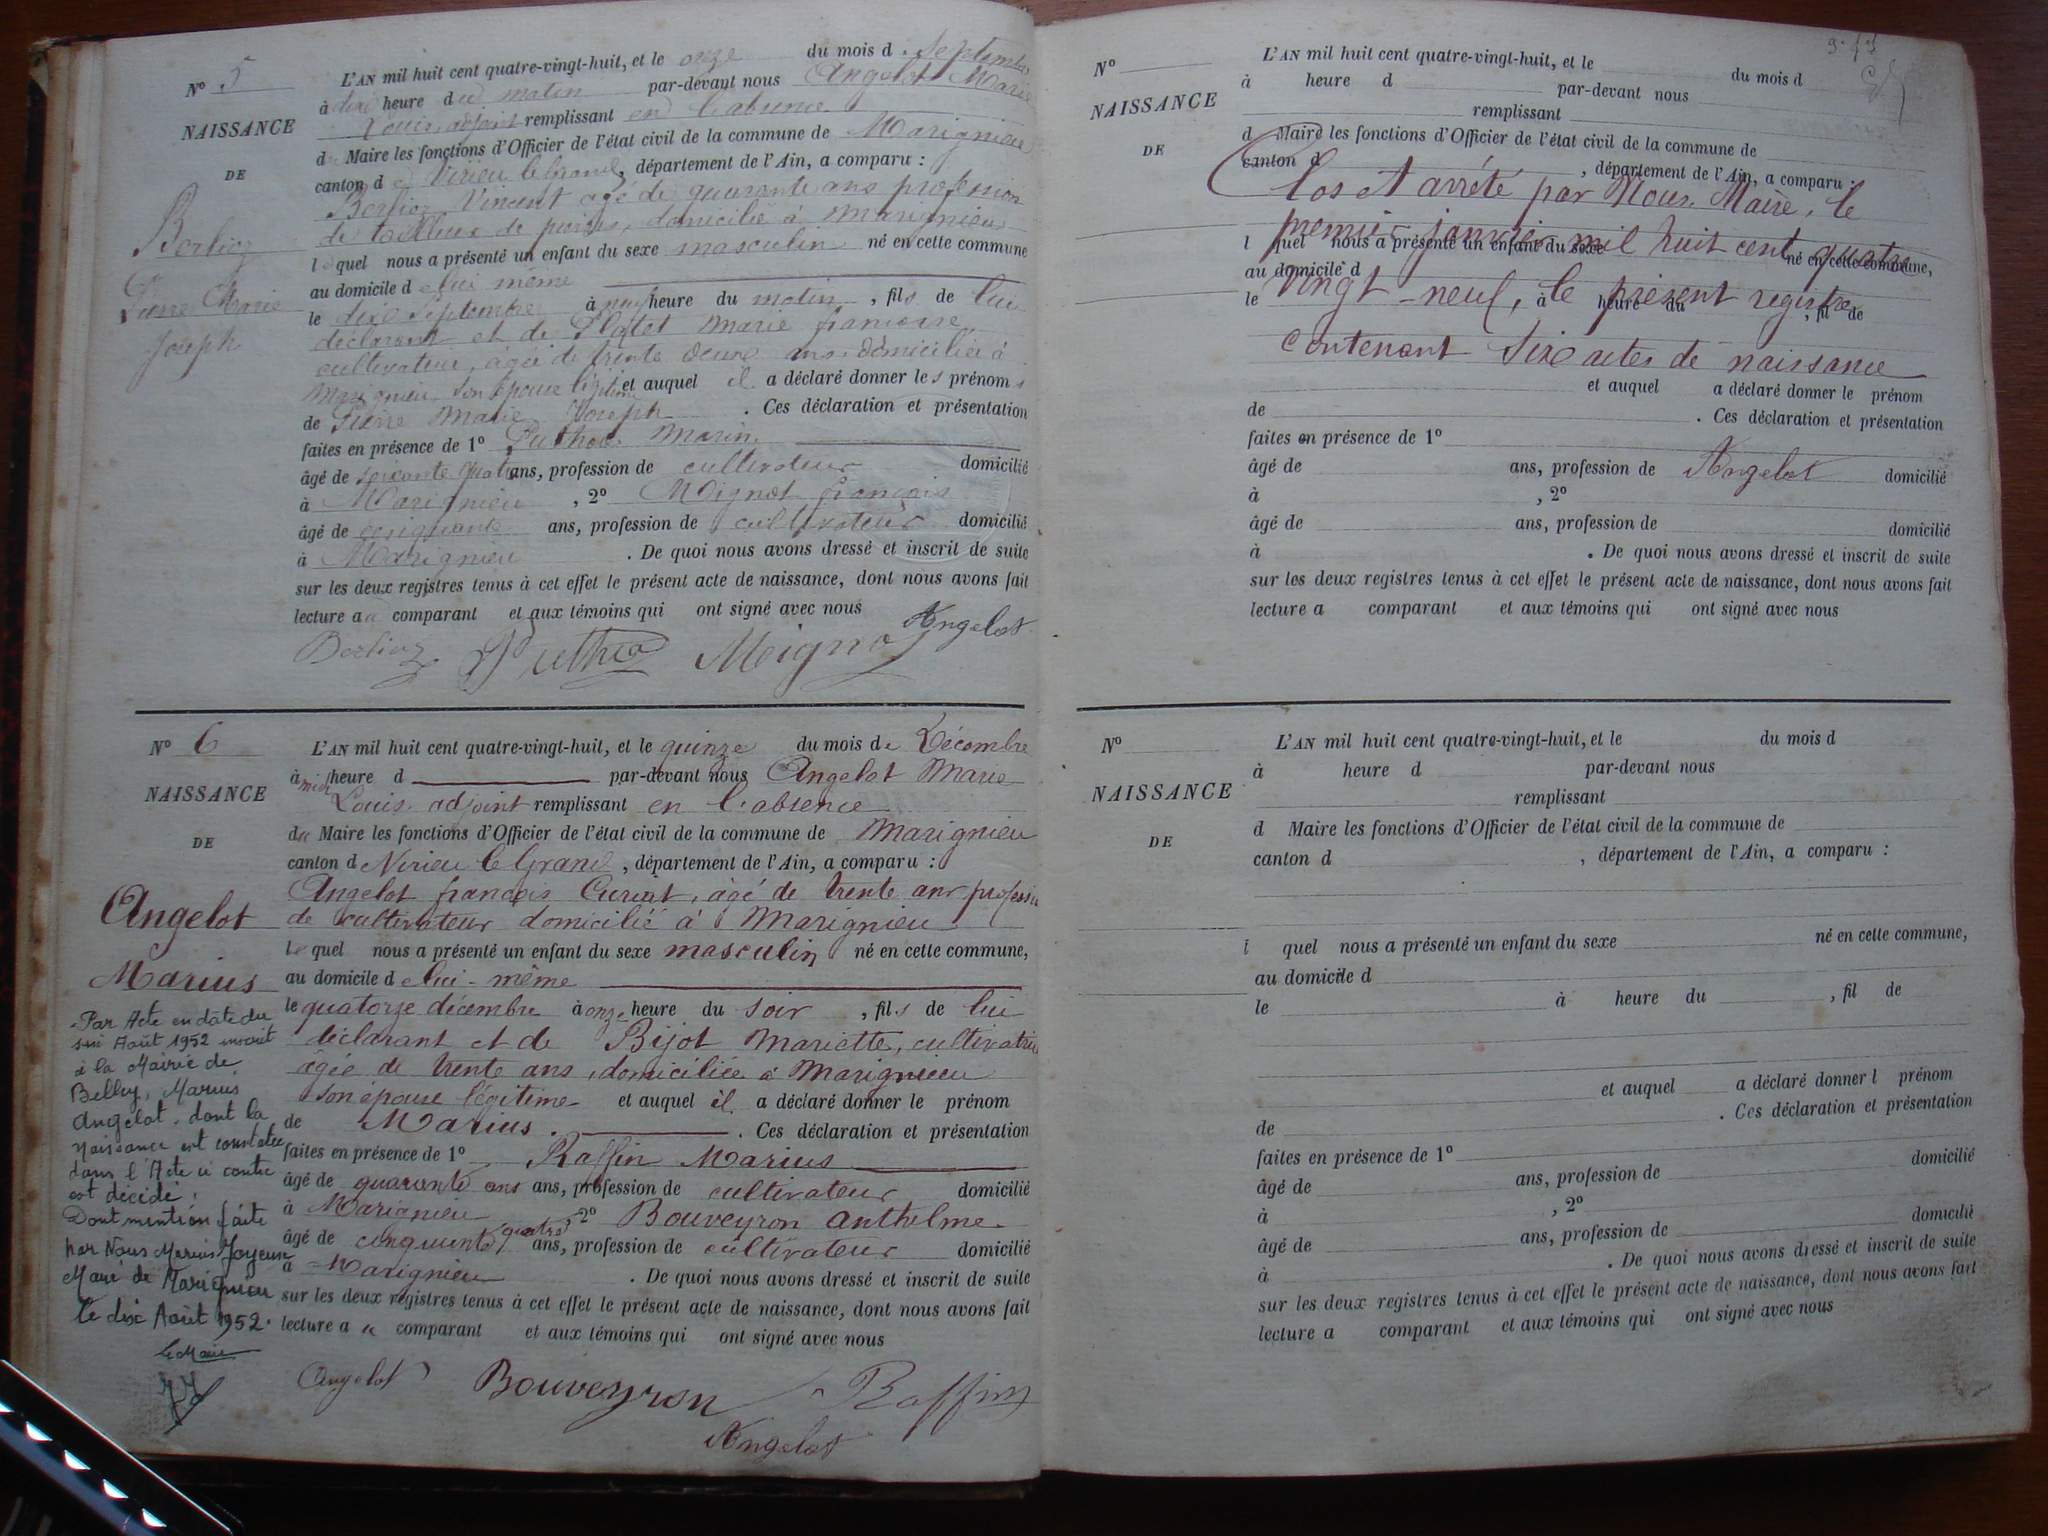 N° 5
NAISSANCE
DE
Berlioz
Pierre Marie
Joseph
L'AN mil huit cent quatre-vingt-huit, et le onze du mois d Septembre
à dix heure du matin par-devant nous Angelot Marie
Louis, adjoint remplissant en l'absence
d Maire les fonctions d'Officier de l'état civil de la commune de Marignieu
canton de Virieu le Grand, département de l'Ain, a comparu :
Berlioz Vincent agé de quarante ans profession
de tailleur de pierres, domicilié à Marignieu
lequel nous a présenté un enfant du sexe masculin né en cette commune
au domicile de lui même
le dix Septembre à neuf heure du matin, fils de lui
déclarant et de Platet Marie françoise
cultivateur, agée de trente deux ans domiciliée à
Marignieu son épouse légitime et auquel il a déclaré donner les prénoms
de Pierre Marie Joseph . Ces déclaration et présentation
faites en présence de 1° Puthod Marin
âgé de soixante quatre ans, profession de cultivateur domicilié
à Marignieu , 2° Mignot françois
âgé de cinquante ans, profession de cultivateur domicilié
à Marignieu . De quoi nous avons dressé et inscrit de suite
sur les deux registres tenus à cet effet le présent acte de naissance, dont nous avons fait
lecture au comparant et aux témoins qui ont signé avec nous
Angelot
Berlioz Puthod Mignot
N° 6
NAISSANCE
DE
Angelot
Marius
Par Acte en date du
six Août 1952 inscrit
à la Mairie de
Belley, Marius
Angelot, dont la
naissance est constatée
dans l'Acte ci contre
est décédé.
Dont mention faite
par Nous Marius Joyeux
Maire de Marignieu
le dix Août 1952.
Le Maire
L'AN mil huit cent quatre-vingt-huit, et le quinze du mois de Décembre
à midi heure d par-devant nous Angelot Marie
Louis, adjoint remplissant en l'absence
du Maire les fonctions d'Officier de l'état civil de la commune de Marignieu
canton d Virieu le Grand, département de l'Ain, a comparu :
Angelot françois Curiat, âgé de trente ans profession
de cultivateur domicilié à Marignieu
Lequel nous a présenté un enfant du sexe masculin né en cette commune,
au domicile de lui-même
le quatorze décembre à onze heure du soir, fils de lui
déclarant et de Bijot Mariette, cultivatrice
âgée de trente ans, domiciliée à Marignieu
son épouse légitime et auquel il a déclaré donner le prénom
de Marius. . Ces déclaration et présentation
faites en présence de 1° Raffin Marius
âgé de quarante ans ans, profession de cultivateur domicilié
à Marignieu 2° Bouveyron Anthelme
âgé de cinquante quatre ans, profession de cultivateur domicilié
à Marignieu . De quoi nous avons dressé et inscrit de suite
sur les deux registres tenus à cet effet le présent acte de naissance, dont nous avons fait
lecture au comparant et aux témoins qui ont signé avec nous
Angelot Bouveyron Raffin
Angelot
N°
NAISSANCE
DE
L'AN mil huit cent quatre-vingt-huit, et le du mois d
à heure d par-devant nous
remplissant
d Maire les fonctions d'Officier de l'état civil de la commune de
canton d , département de l'Ain, a comparu :
Clos et arrêté par Nous Maire, le
premier janvier mil huit cent quatre
l quel nous a présenté un enfant du sexe né en cette commune,
au domicile d
vingt-neuf, le présent registre
le à heure du , fil de
contenant Six actes de naissance
et auquel a déclaré donner le prénom
de . Ces déclaration et présentation
faites en présence de 1°
âgé de ans, profession de Angelot domicilié
à , 2°
âgé de ans, profession de domicilié
à . De quoi nous avons dressé et inscrit de suite
sur les deux registres tenus à cet effet le présent acte de naissance, dont nous avons fait
lecture a comparant et aux témoins qui ont signé avec nous
N°
NAISSANCE
DE
L'AN mil huit cent quatre-vingt-huit, et le du mois d
à heure d par-devant nous
remplissant
d Maire les fonctions d'Officier de l'état civil de la commune de
canton d , département de l'Ain, a comparu :
l quel nous a présenté un enfant du sexe né en cette commune,
au domicile d
le à heure du , fil de
et auquel a déclaré donner l prénom
de . Ces déclaration et présentation
faites en présence de 1°
âgé de ans, profession de domicilié
à , 2°
âgé de ans, profession de domicilié
à . De quoi nous avons dressé et inscrit de suite
sur les deux registres tenus à cet effet le présent acte de naissance, dont nous avons fait
lecture a comparant et aux témoins qui ont signé avec nous